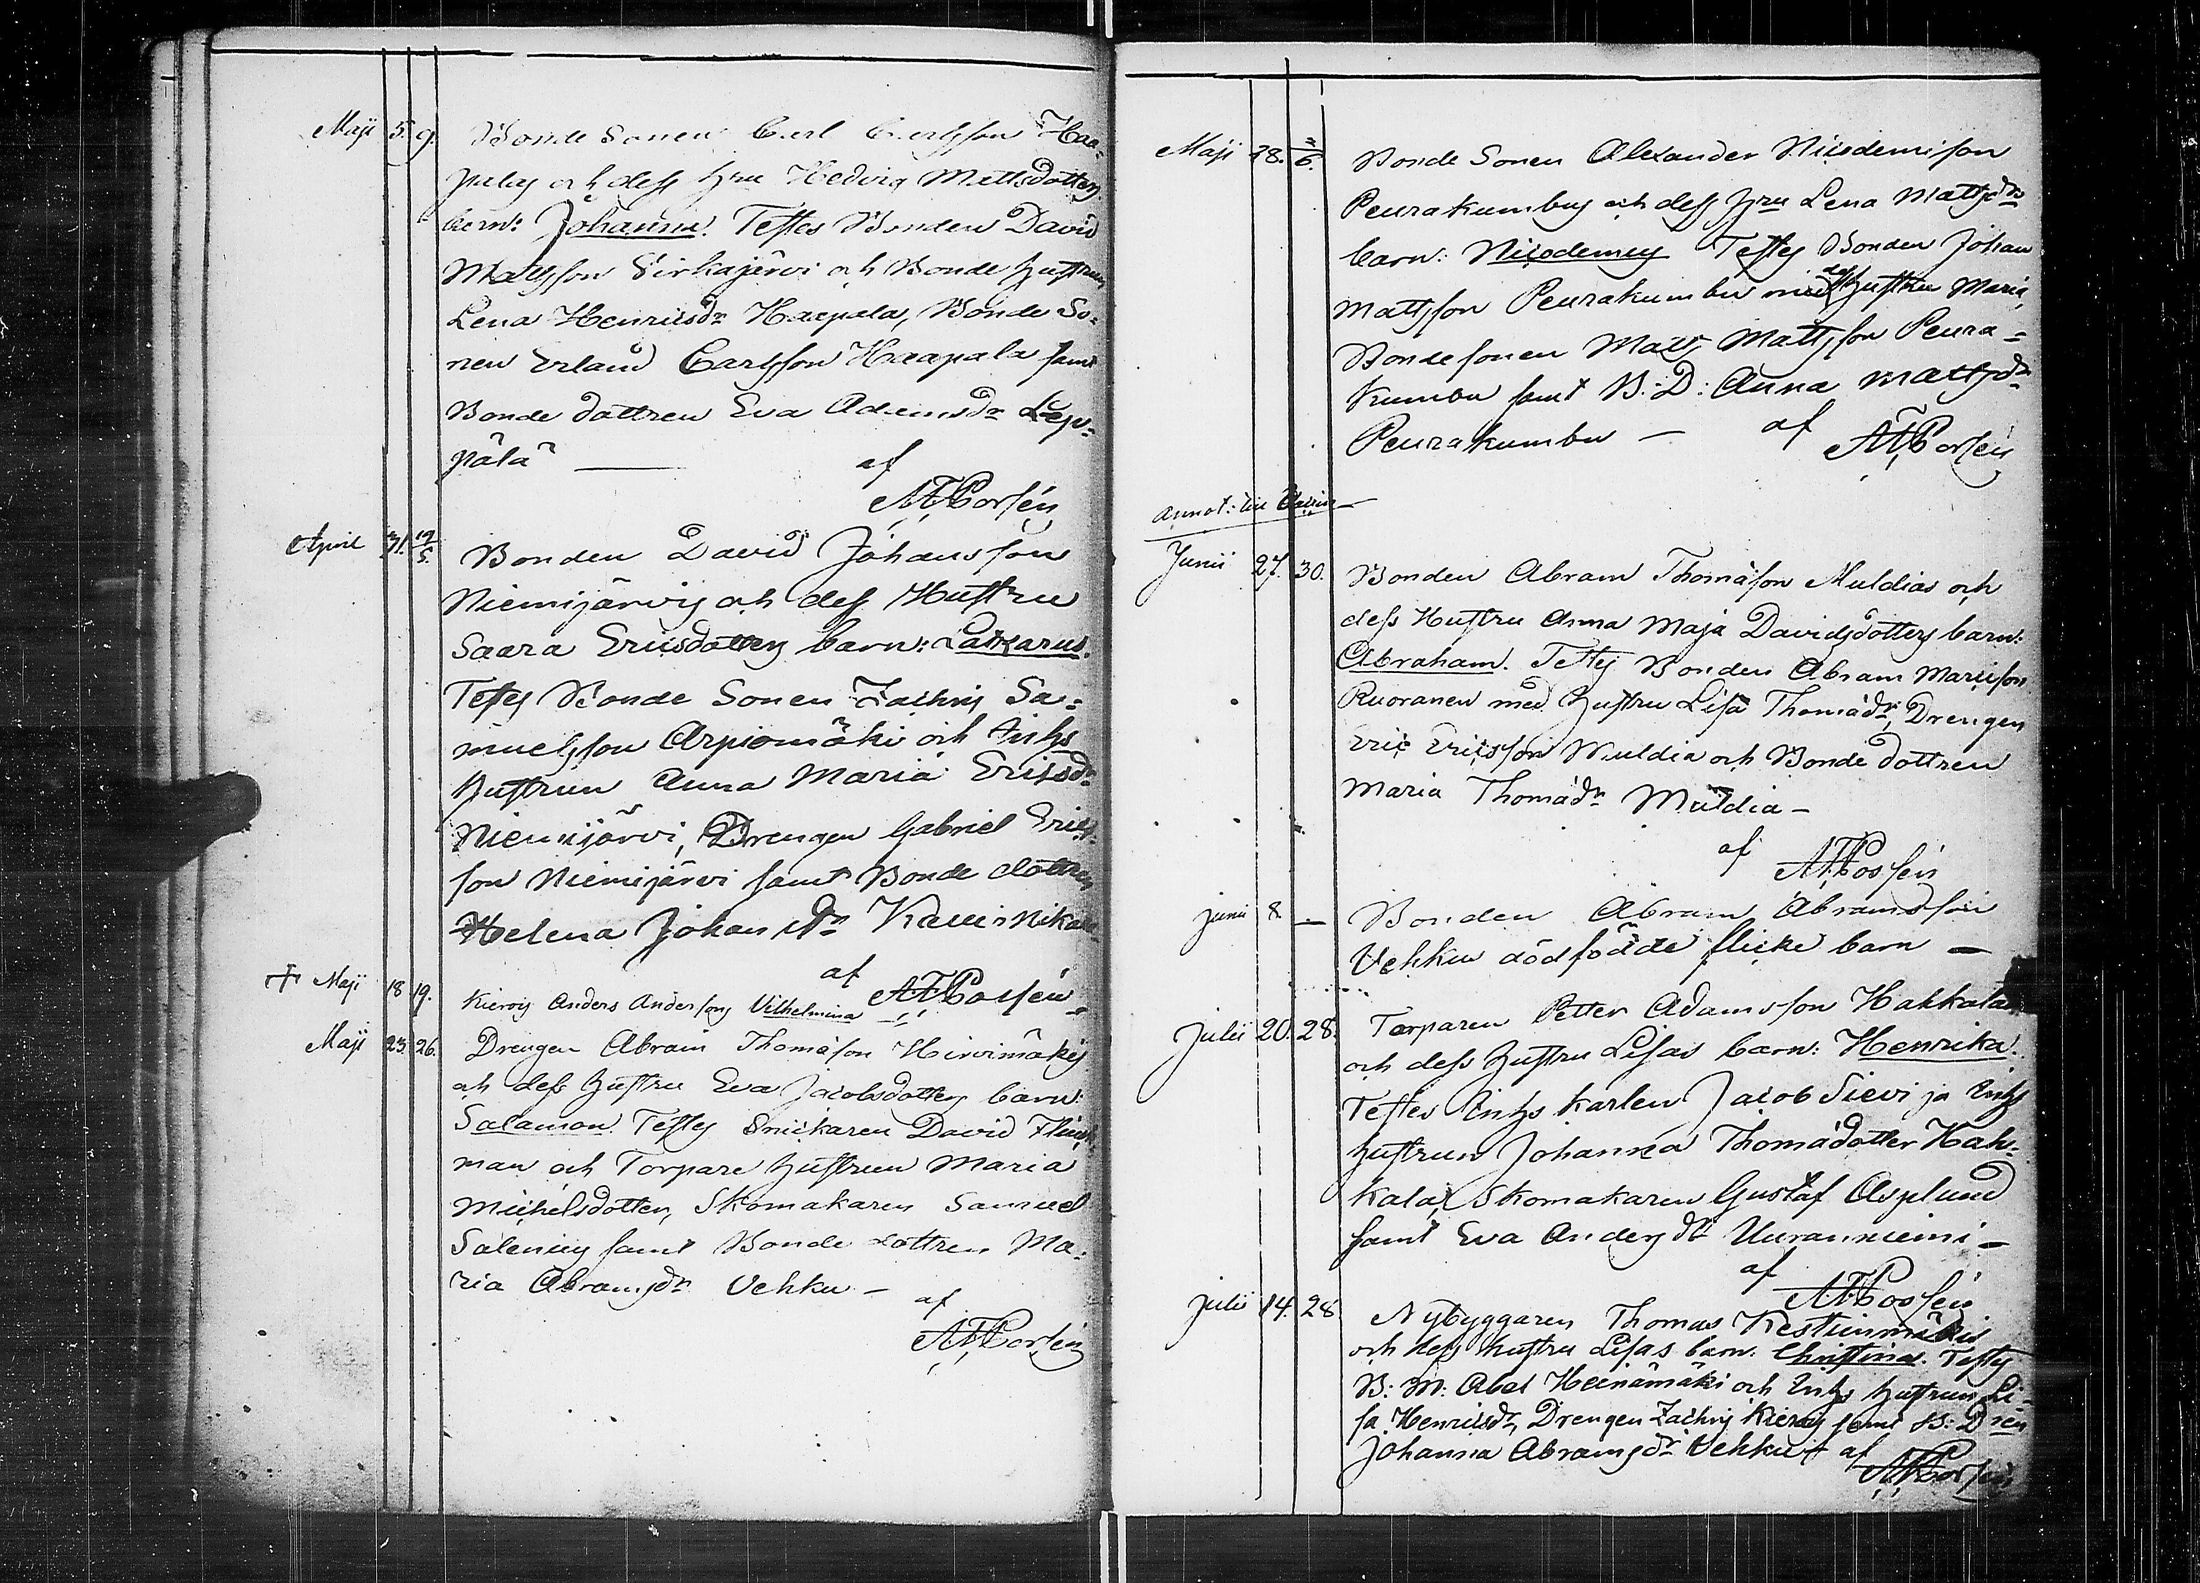 Maji 5. 9. Bonde Sonen Carl Carlsson Haa=
palas och dess Hru Hedvig Mattsdotters
barn: Johanna. Testes Bonden David
Mattsson Sirkajärvi och Bonde Hustrun
Lena Henricsdr Haapala, Bonde So=
nen Erland Carlsson Haapala samt
Bonde dottren Eva Adamsdr Lep=
pälä — af
A F Borsén
April 31. 19/5. Bonden David Johansson
Niemijärvis och dess Hustru
Saara Ericsdotters barn: Latzarus.
Testes Bonde Sonen Zachris Sa=
muelsson Arpiomäki och Inhs
Hustrun Anna Maria Ericsdr
Niemijärvi, Drengen Gabriel Erics=
son Niemijärvi samt Bonde dottren
Helena Johansdr
af A F Borsén
† Maji 18 19. Kierois Anders Anderssons Vilhelmina
Maji 23. 26. Drengen Abram Thomasson Hirvimäkis
och dess Hustru Eva Jacobsdotters barn:
Salamon. Testes Snickaren David
man och Torpare Hustrun Maria
Michelsdotter, Skomakaren Samuel
Salenius samt Bonde dottren Ma=
ria Abramsdr Vehku —
af
A F Borsén
Maji 28. 2/6. Bonde Sonen Alexander Nicodemison
Peurakumbus och dess Hru Lena Mattsdrs
barn: Nicodemus Testes Bonden Johan
Mattsson Peurakumbu med dess Hustru Maria,
Bondesonen Matts Mattsson Peura=
kumbu samt B: D: Anna Mattsdr
Peurakumbu — af A F Borsén
annot: till
Junii 27. 30. Bonden Abram Thomasson Muldias och
dess Hustru Anna Maja Davidsdotters barn:
Abraham. Testes Bonden Abram Marcison
Ruoranen med Hustru Lisa Thomadr, Drengen
Eric Ericsson Muldia och Bonde dottren
Maria Thomadr Muldia —
af A F Borsén
Junii 8. — Bonden Abram Abramsson
Vehku dödfödde flicke barn —
Julii 20. 28. Torparen Petter Adamsson Hakkalas
och dess Hustru Lisas barn: Henrika.
Testes Inhs karlen Jacob Sievi ja Inhs
hustrun Johanna Thomadotter Hak=
kala, Skomakaren Gustaf Asplund
samt Eva Andersdr Uuranniemi —
af
A F Borsén
Julii 14. 28 Nybyggaren Thomas Kestinmäkis
och dess hustru Lisas barn: Christina. Testes
B: M: Abel Heinämäki och Inhs hustrun Li=
sa Henricsdr, Drengen Zachris Kierois samt B: Dren
Johanna Abramsdr Vehku af
A F Borsén